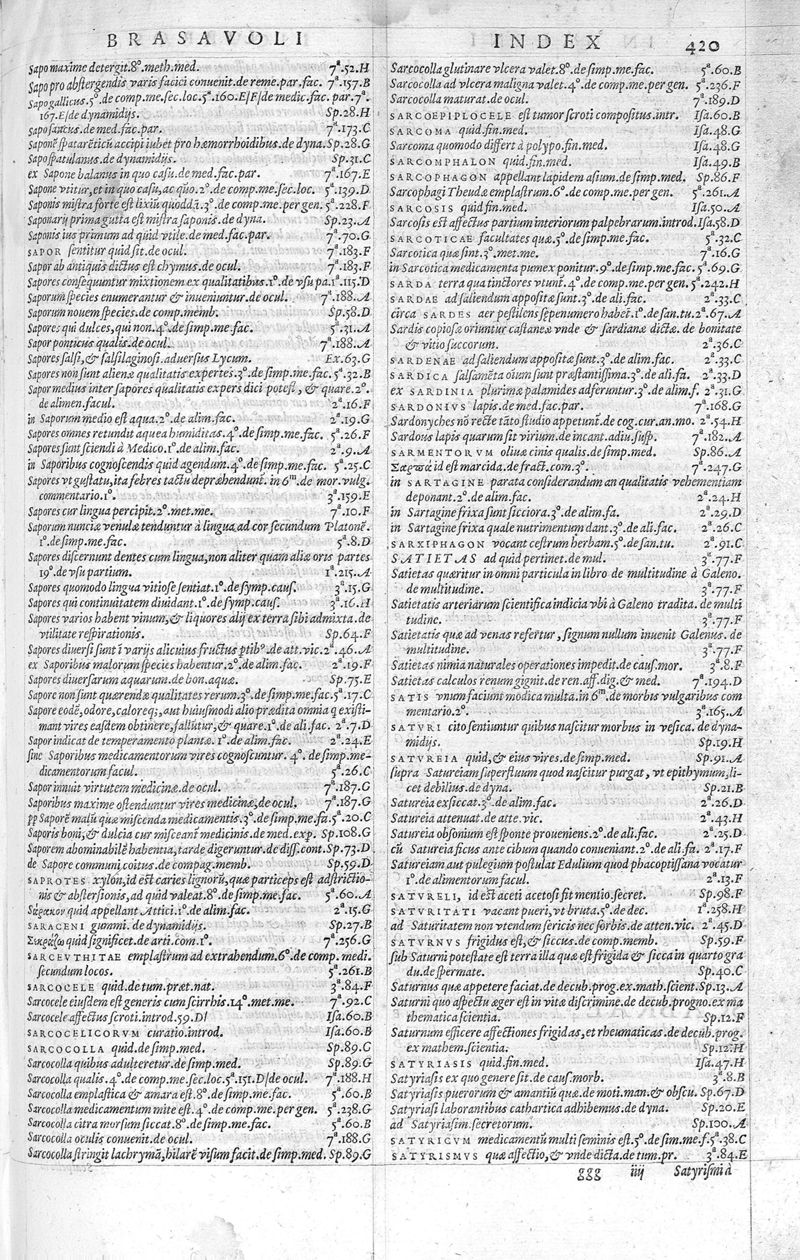 BRASAVOLI
Sapo maxime detergit.8º.meth.med. 7ª.52.H
Sapo pro abstergendis varis faciei conuenit.de reme.par.fac. 7ª.157.B
Sapo gallicus.5º.de comp.me.sec.loc.5ª.160.E/E/de medic.fac.par.7ª.
167.E/de dynamidijs. Sp.28.H
Sapo sancus.de med.fac.par. 7ª.173.C
accipi iubet pro hæmorrhoidibus.de dyna.Sp.28.G
Sapo spatulanus.de dynamidijs. Sp.31.C
ex Sapone balanus in quo casu.de med.fac.par. 7ª.167.E
Sapone vtitur,et in quo casu,ac quo.2º.de comp.me.sec.loc. 5ª.139.D
Saponis mistra forte est lixiũ quodd.3º.de comp.me.per gen. 5ª.228.F
Saponarij prima gutta est mistra saponis.de dyna. Sp.23.A
Saponis ius primum ad quid vtile.de med.fac.par. 7ª.70.G
SAPOR sentitur quid sit.de ocul. 7ª.183.F
Sapor ab antiquis dictus est chymus.de ocul. 7ª.183.F
Sapores consequuntur mixtionem ex qualitatibus.1º.de vsu pa.1ª.115.D
Saporum species enumerantur & inueniuntur.de ocul. 7ª.188.A
Saporum nouem species.de comp.memb. Sp.58.D
Sapores qui dulces,qui non.4º.de simp.me.fac. 5ª.31.A
Sapor ponticus qualis.de ocul. 7ª.188.A
Sapores salsi,& salsilaginosi.aduersus Lycum. Ex.63.G
Sapores non sunt alienæ qualitatis expertes.3º.de simp.me.fac.5ª.32.B
Sapor medius inter sapores qualitatis expers dici potest, & quare.2º.
de alimen.facul. 2ª.16.F
in Saporum medio est aqua.2º.de alim.fac. 2ª.19.G
Sapores omnes retundit aquea humiditas.4º.de simp.me.fac. 5ª.26.F
Sapores sunt sciendi à Medico.1º.de alim.fac. 2ª.9.A
in Saporibus cognoscendis quid agendum.4º.de simp.me.fac. 5ª.25.C
Sapores vt gustatu,ita febres tactu depræhendunt. in 6ᵐ.de mor.vulg.
commentario.1º. 3ª.159.E
Sapores cur lingua percipit.2º.met.me. 7ª.10.F
Saporum nunciæ venulæ tenduntur à lingua ad cor secundum Platonẽ.
1º.de simp.me.fac. 5ª.8.D
Sapores discernunt dentes cum lingua,non aliter quam aliæ oris partes
19º.de vsu partium. 1ª.215.A
Sapores quomodo lingua vitiose sentiat.1º.de symp.caus. 3ª.15.G
Sapores qui continuitatem diuidant.1º.de symp.caus. 3ª.16.H
Sapores varios habent vinum,& liquores alij ex terra sibi admixta.de
vtilitate respirationis. Sp.64.F
Sapores diuersi sunt ĩ varijs alicuius fructus de att.vic.2ª.46.A
ex Saporibus malorum species habentur.2º.de alim.fac. 2ª.19.F
Sapores diuersarum aquarum.de bon.aquæ. Sp.75.E
Sapore non sunt quærendæ qualitates rerum.3º.de simp.me.fac.5ª.17.C
Sapore eodẽ,odore,caloreq;,aut huiusmodi alio prædita omnia q existi-
mant vires easdem obtinere,fallũtur,& quare.1º.de ali.fac. 2ª.7.D
Sapor indicat de temperamento plantæ.1º.de alim.fac. 2ª.24.E
sine Saporibus medicamentorum vires cognoscuntur. 4º. de simp.me-
dicamentorum facul. 5ª.26.C
Sapor innuit virtutem medicinæ.de ocul. 7ª.187.G
Saporibus maxime ostenduntur vires medicinæ,de ocul. 7ª.187.G
pp Saporẽ malũ quæ miscenda medicamentis.3º.de simp.me.fa.5ª.20.C
Saporis boni,& dulcia cur misceant medicinis.de med.exp. Sp.108.G
Saporem abominabilẽ habentia,tarde digeruntur.de diss.cont.Sp.73.D
de Sapore communi.coitus.de compag.memb. Sp.59.D
SAPROTES xylōn,id est caries lignorũ,quæ particeps est adstrictio-
nis & abstersionis,ad quid valeat.8º.de simp.me.fac. 5ª.60.A
quid appellant Attici.1º.de alim.fac. 2ª.15.G
SARACENI gummi.de dynamidijs. Sp.27.B
quid significet.de arti.com.1º. 7ª.256.G
SARCEVTHITAE emplastrum ad extrabendum.6º.de comp.medi.
secundum locos. 5ª.261.B
SARCOCELE quid.de tum.præt.nat. 3ª.84.F
Sarcocele eiusdem est generis cum scirrhis.14º.met.me. 7ª.92.C
Sarcocele affectus scroti.introd.59.D/ Isa.60.B
SARCOCELICORVM curatio.introd. Isa.60.B
SARCOCOLLA quid.de simp.med. Sp.89.G
Sarcocolla quibus adulteretur.de simp.med. Sp.89.G
Sarcocolla qualis.4º.de comp.me.sec.loc.5ª.151.D/de ocul. 7ª.188.H
Sarcocolla emplastica & amara est.8º.de simp.me.fac. 5ª.60.B
Sarcocolla medicamentum mite est.4º.de comp.me.per gen. 5ª.238.G
Sarcocolla citra morsum siccat.8º.de simp.me.fac. 5ª.60.B
Sarcocolla oculis conuenit.de ocul. 7ª.188.G
Sarcocolla stringit lachrymã,hilarẽ visum facit.de simp.med. Sp.89.G
INDEX 420
Sarcocolla glutinare vlcera valet.8º.de simp.me.fac. 5ª.60.B
Sarcocolla ad vlcera maligna valet.4º.de comp.me.per gen. 5ª.236.F
Sarcocolla maturat.de ocul. 7ª.189.D
SARCOEPIPLOCELE est tumor scroti compositus.intr. Isa.60.B
SARCOMA quid.fin.med. Isa.48.G
Sarcoma quomodo differt à polypo.fin.med. Isa.48.G
SARCOMPHALON quid.fin.med. Isa.49.B
SARCOPHAGON appellant lapidem asium.de simp.med. Sp.86.F
Sarcophagi Theudæ emplastrum.6º.de comp.me.per gen. 5ª.261.A
SARCOSIS quid.fin.med. Isa.50.A
Sarcosis est affectus partium interiorum palpebrarum.introd.Isa.58.D
SARCOTICAE facultates quæ.5º.de simp.me.fac. 5ª.32.C
Sarcotica quæ sint.3º.met.me. 7ª.16.G
in Sarcotica medicamenta pumex ponitur.9º.de simp.me.fac.5ª.69.G
SARDA terra qua tinctores vtunt.4º.de comp.me.per gen.5ª.242.H
SARDAE ad saliendum appositæ sunt.3º.de ali.fac. 2ª.33.C
circa SARDES aer pestilens sepenumero habet.1º.de san.tu.2ª.67.A
Sardis copiosæ oriuntur castaneæ vnde & sardianæ dictæ. de bonitate
& vitio succorum. 2ª.36.C
SARDENAE ad saliendum appositæ sunt.3º.de alim.fac. 2ª.33.C
SARDICA salsamẽta oĩum sunt præstantissima.3º.de ali.fa. 2ª.33.D
ex SARDINIA plurimæ palamides adferuntur.3º.de alim.f. 2ª.31.G
SARDONIVS lapis.de med.fac.par. 7ª.168.G
Sardonyches nõ recte tãto studio appetunt.de cog.cur.an.mo. 2ª.54.H
Sardous lapis quarum sit virium.de incant.adiu.susp. 7ª.182.A
SARMENTORVM oliuæ cinis qualis.de simp.med. Sp.86.A
id est marcida.de fract.com.3º. 7ª.247.G
in SARTAGINE parata considerandum an qualitatis vehementiam
deponant.2º.de alim.fac. 2ª.24.H
in Sartagine frixa sunt sicciora.3º.de alim.fa. 2ª.29.D
in Sartagine frixa quale nutrimentum dant.3º.de ali.fac. 2ª.26.C
SARXIPHAGON vocant cestrum herbam.5º.de san.tu. 2ª.91.C
SATIETAS ad quid pertinet.de mul. 3ª.77.F
Satietas quæritur in omni particula in libro de multitudine à Galeno.
de multitudine. 3ª.77.F
Satietatis arteriarum scientifica indicia vbi à Galeno tradita.de multi
tudine. 3ª.77.F
Satietatis quæ ad venas refertur, signum nullum inuenit Galenus.de
multitudine. 3ª.77.F
Satietas nimia naturales operationes impedit.de caus.mor. 3ª.8.F
Satietas calculos renum gignit.de ren.aff.dig.& med. 7ª.194.D
SATIS vnum faciunt modica multa.in 6ᵐ.de morbis vulgaribus com
mentario.2º. 3ª.165.A
SATVRI cito sentiuntur quibus nascitur morbus in vesica.de dyna-
midijs. Sp.19.H
SATVREIA quid,& eius vires.de simp.med. Sp.91.A
supra Satureiam superfluum quod nascitur purgat, vt epithymum,li-
cet debilius.de dyna. Sp.21.B
Satureia exsiccat.3º.de alim.fac. 2ª.26.D
Satureia attenuat.de atte.vic. 2ª.43.H
Satureia obsonium est sponte proueniens.2º.de ali.fac. 2ª.25.D
cũ Satureia ficus ante cibum quando conueniant.2º.de ali.fa. 2ª.17.F
Satureiam aut pulegium postulat Edulium quod phacoptissana vocatur
1º.de alimentorum facul. 2ª.13.F
SATVRELI, id est aceti acetosi fit mentio.secret. Sp.98.F
SATVRITATI vacant pueri,vt bruta.5º.de dec. 1ª.258.H
ad Saturitatem non vtendum sericis nec sorbis.de atten.vic. 2ª.45.D
SATVRNVS frigidus est,& siccus.de comp.memb. Sp.59.F
sub Saturni potestate est terra illa quæ est frigida & sicca in quarto gra
du.de spermate. Sp.40.C
Saturnus quæ appetere faciat.de decub.prog.ex math.scient.Sp.13.A
Saturni quo aspectu æger est in vitæ discrimine.de decub.progno.ex ma
thematica scientia. Sp.12.F
Saturnum efficere affectiones frigidas,et rheumaticas.de decub.prog.
ex mathem.scientia. Sp.12.H
SATYRIASIS quid.fin.med. Isa.47.H
Satyriasis ex quo genere sit.de caus.morb. 3ª.8.B
Satyriasis puerorum & amantiũ quæ.de moti.man.& obscu. Sp.67.D
Satyriasi laborantibus cathartica adhibemus.de dyna. Sp.20.E
ad Satyriasim.secretorum. Sp.100.A
SATYRICVM medicamentũ multi seminis est.5º.de sim.me.f.5ª.38.C
SATYRISMVS quæ affectio,& vnde dicta.de tum.pr. 3ª.84.E
ggg iiij Satyrismi à